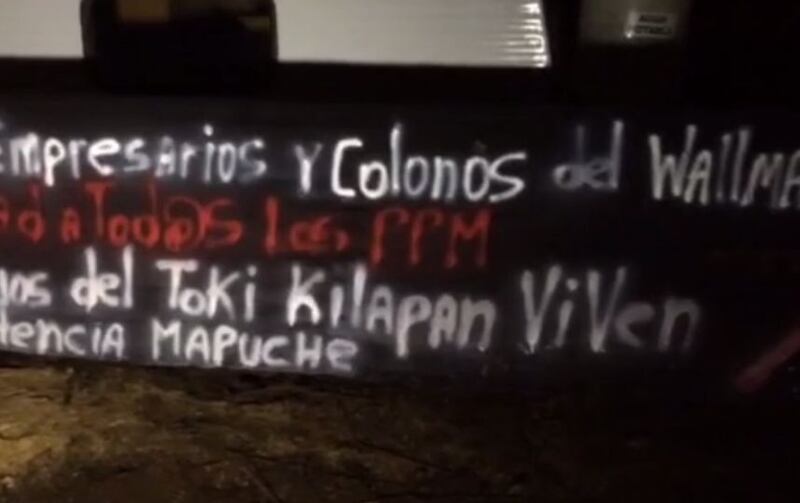 Empresarios y Colonos del Wallma
ad a Tod@s los PPM
jos del Toki Kilapan Viven
tencia Mapuche